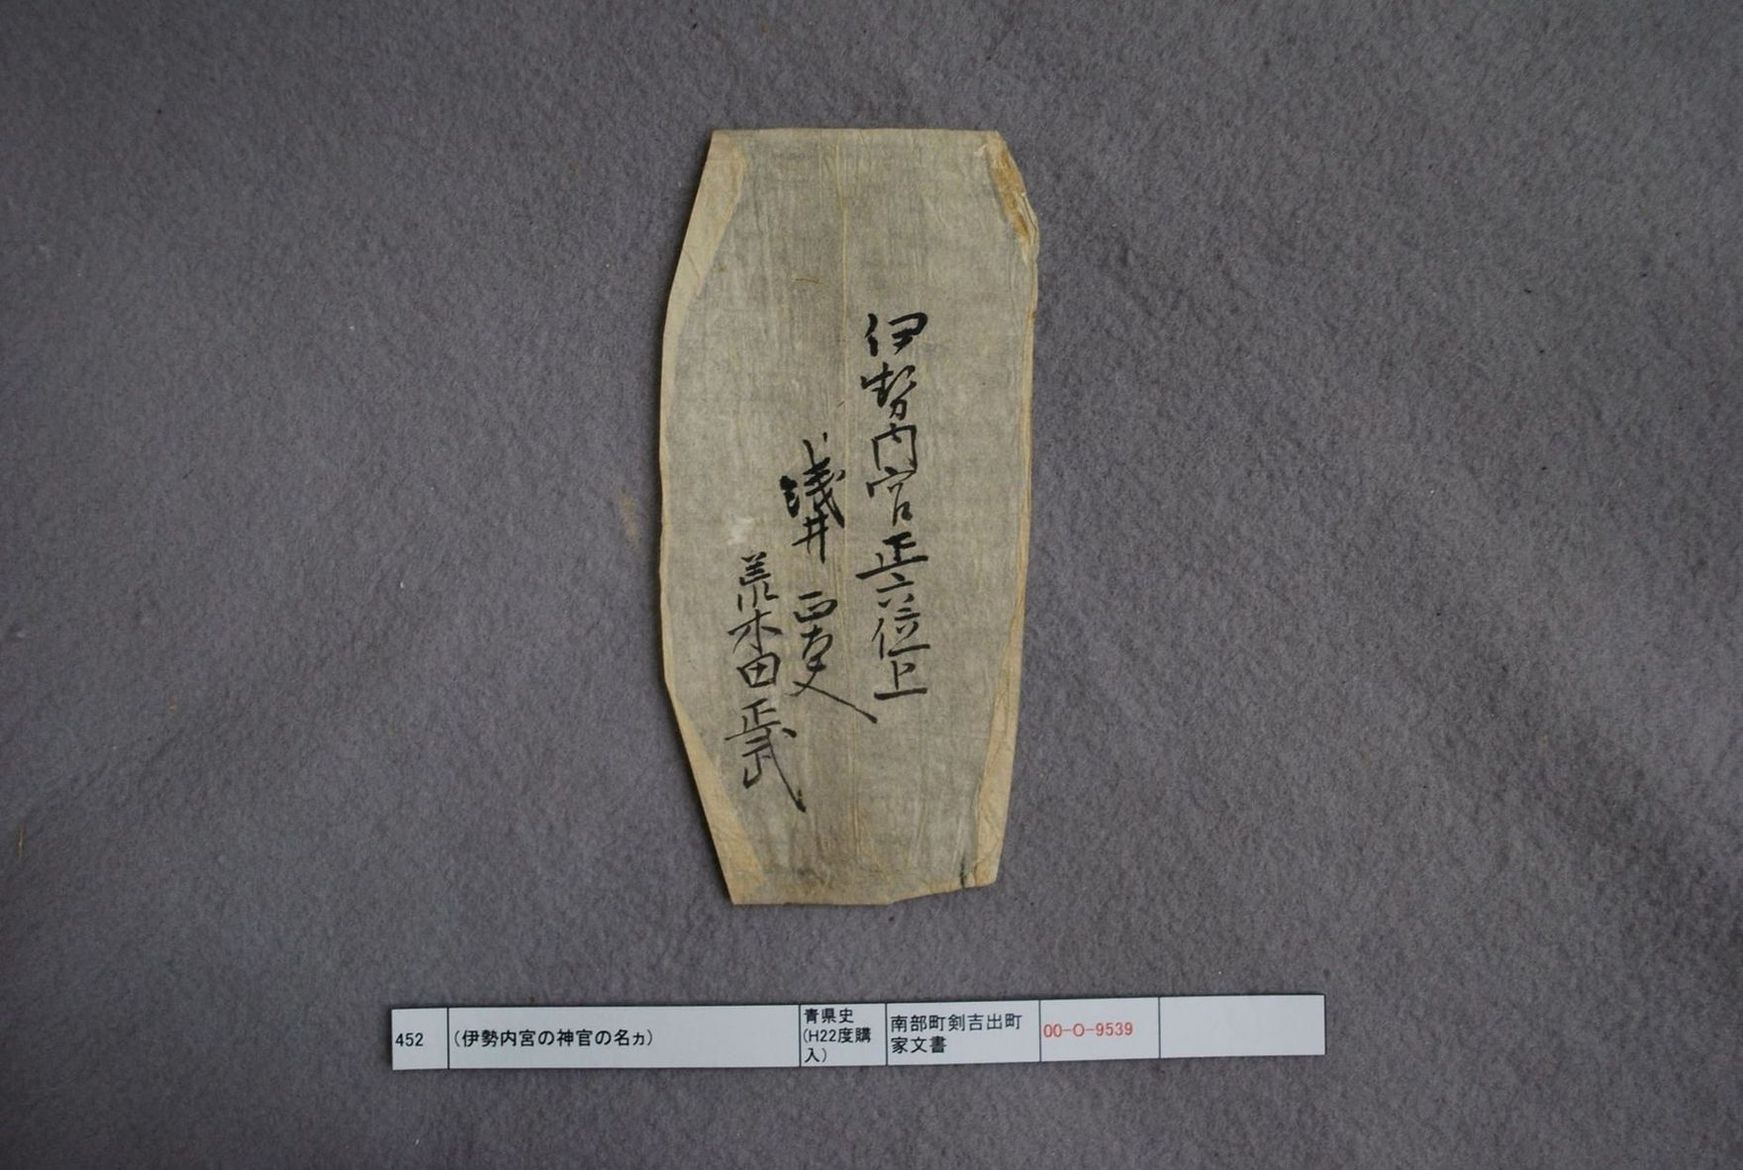 伊勢内宮正六位上
淺井
荒木田正武
452
(伊勢内宮の神官の名ヵ)
青県史
(H22度購
入)
南部町剣吉出町
家文書
00-O-9539